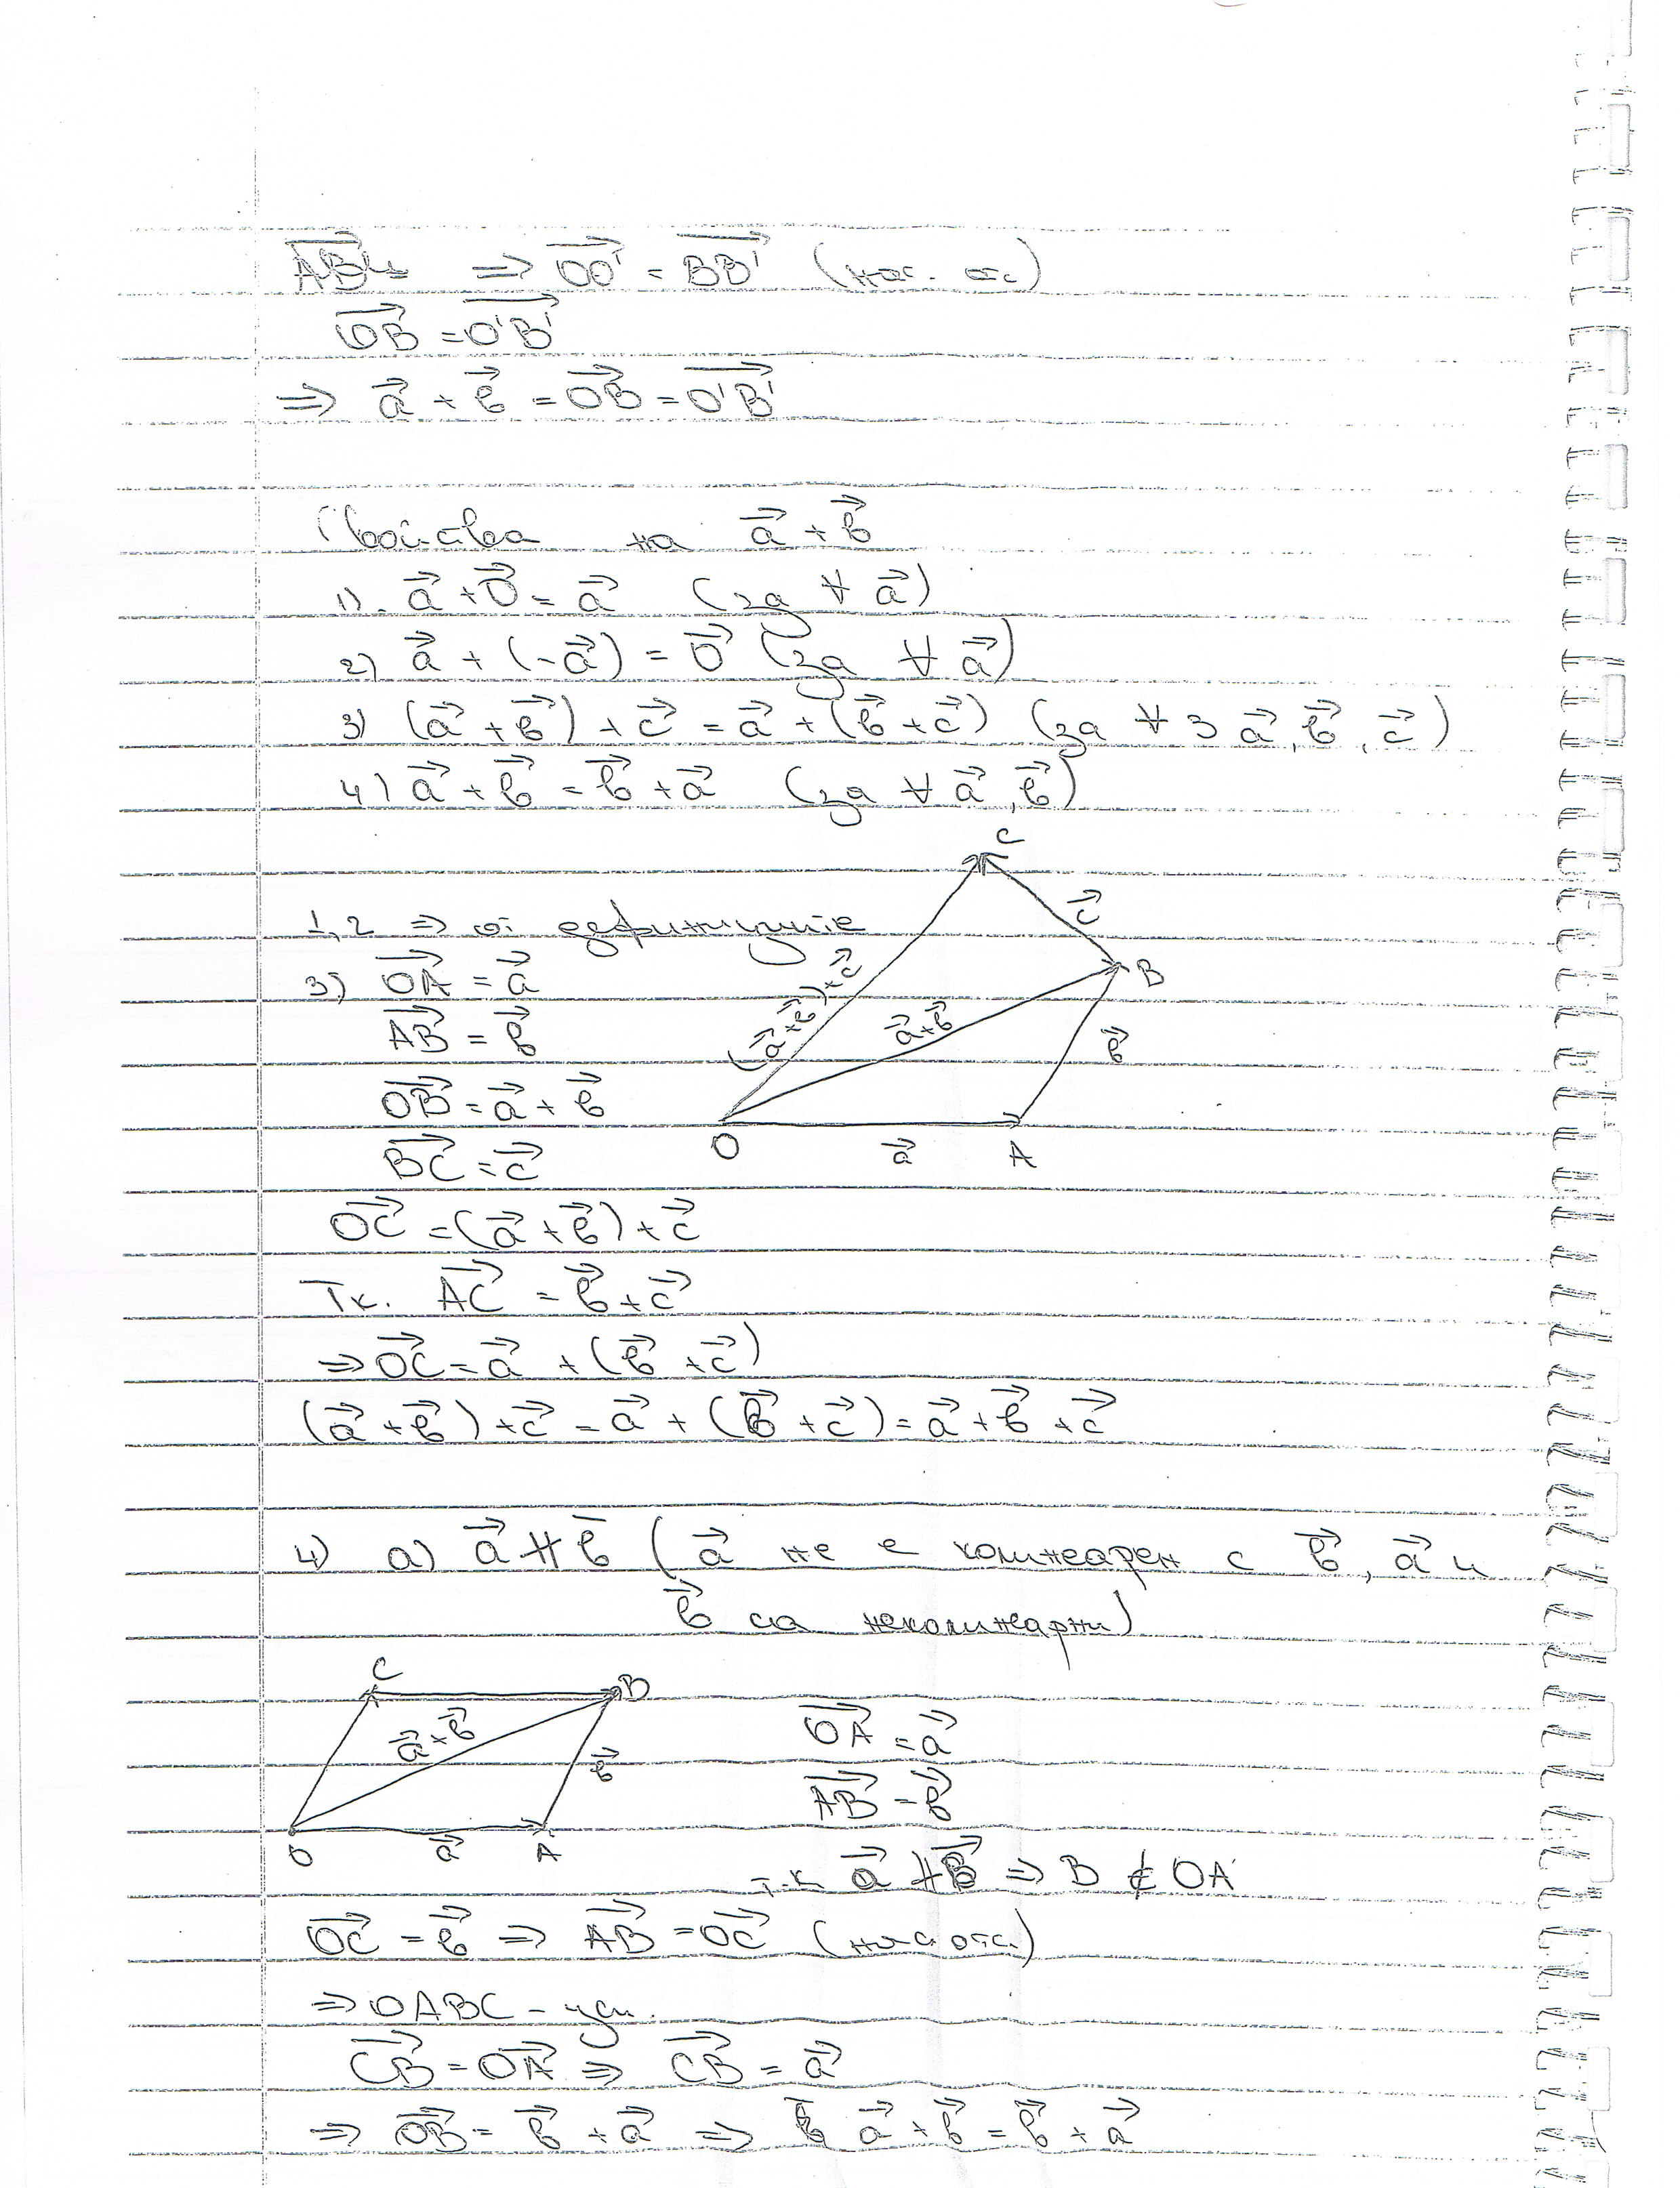 ⇒ OO'→ = BB'→ (нас. отс)
OB→ = O'B'→
⇒ a→ + b→ = OB→ = O'B'→
Свойства на a→ + b→
1). a→ + 0→ = a→ (за ∀ a→)
2) a→ + (-a→) = 0→ (за ∀ a→)
3) (a→ + b→) + c→ = a→ + (b→ + c→) (за ∀ 3 a→, b→, c→)
4) a→ + b→ = b→ + a→ (за ∀ a→, b→)
C
c→
1,2 ⇒ от дефиницията
B
3) OA→ = a→
(a→ + b→) + c→
a→ + b→
AB→ = b→
b→
OB→ = a→ + b→
O a→ A
BC→ = c→
OC→ = (a→ + b→) + c→
Тк. AC→ = b→ + c→
⇒ OC→ = a→ + (b→ + c→)
(a→ + b→) + c→ = a→ + (b→ + c→) = a→ + b→ + c→
4) a) a→ ∦ b→ (a→ не е колинеарен с b→, a→ и
b→ са неколинеарни)
C B
a→ + b→
b→
O a→ A
OA→ = a→
AB→ = b→
т.к a→ ∦ b→ ⇒ B ∉ OA
OC→ = b→ ⇒ AB→ = OC→ (нас отс.)
⇒ OABC - усп.
CB→ = OA→ ⇒ CB→ = a→
⇒ OB→ = b→ + a→ ⇒ a→ + b→ = b→ + a→